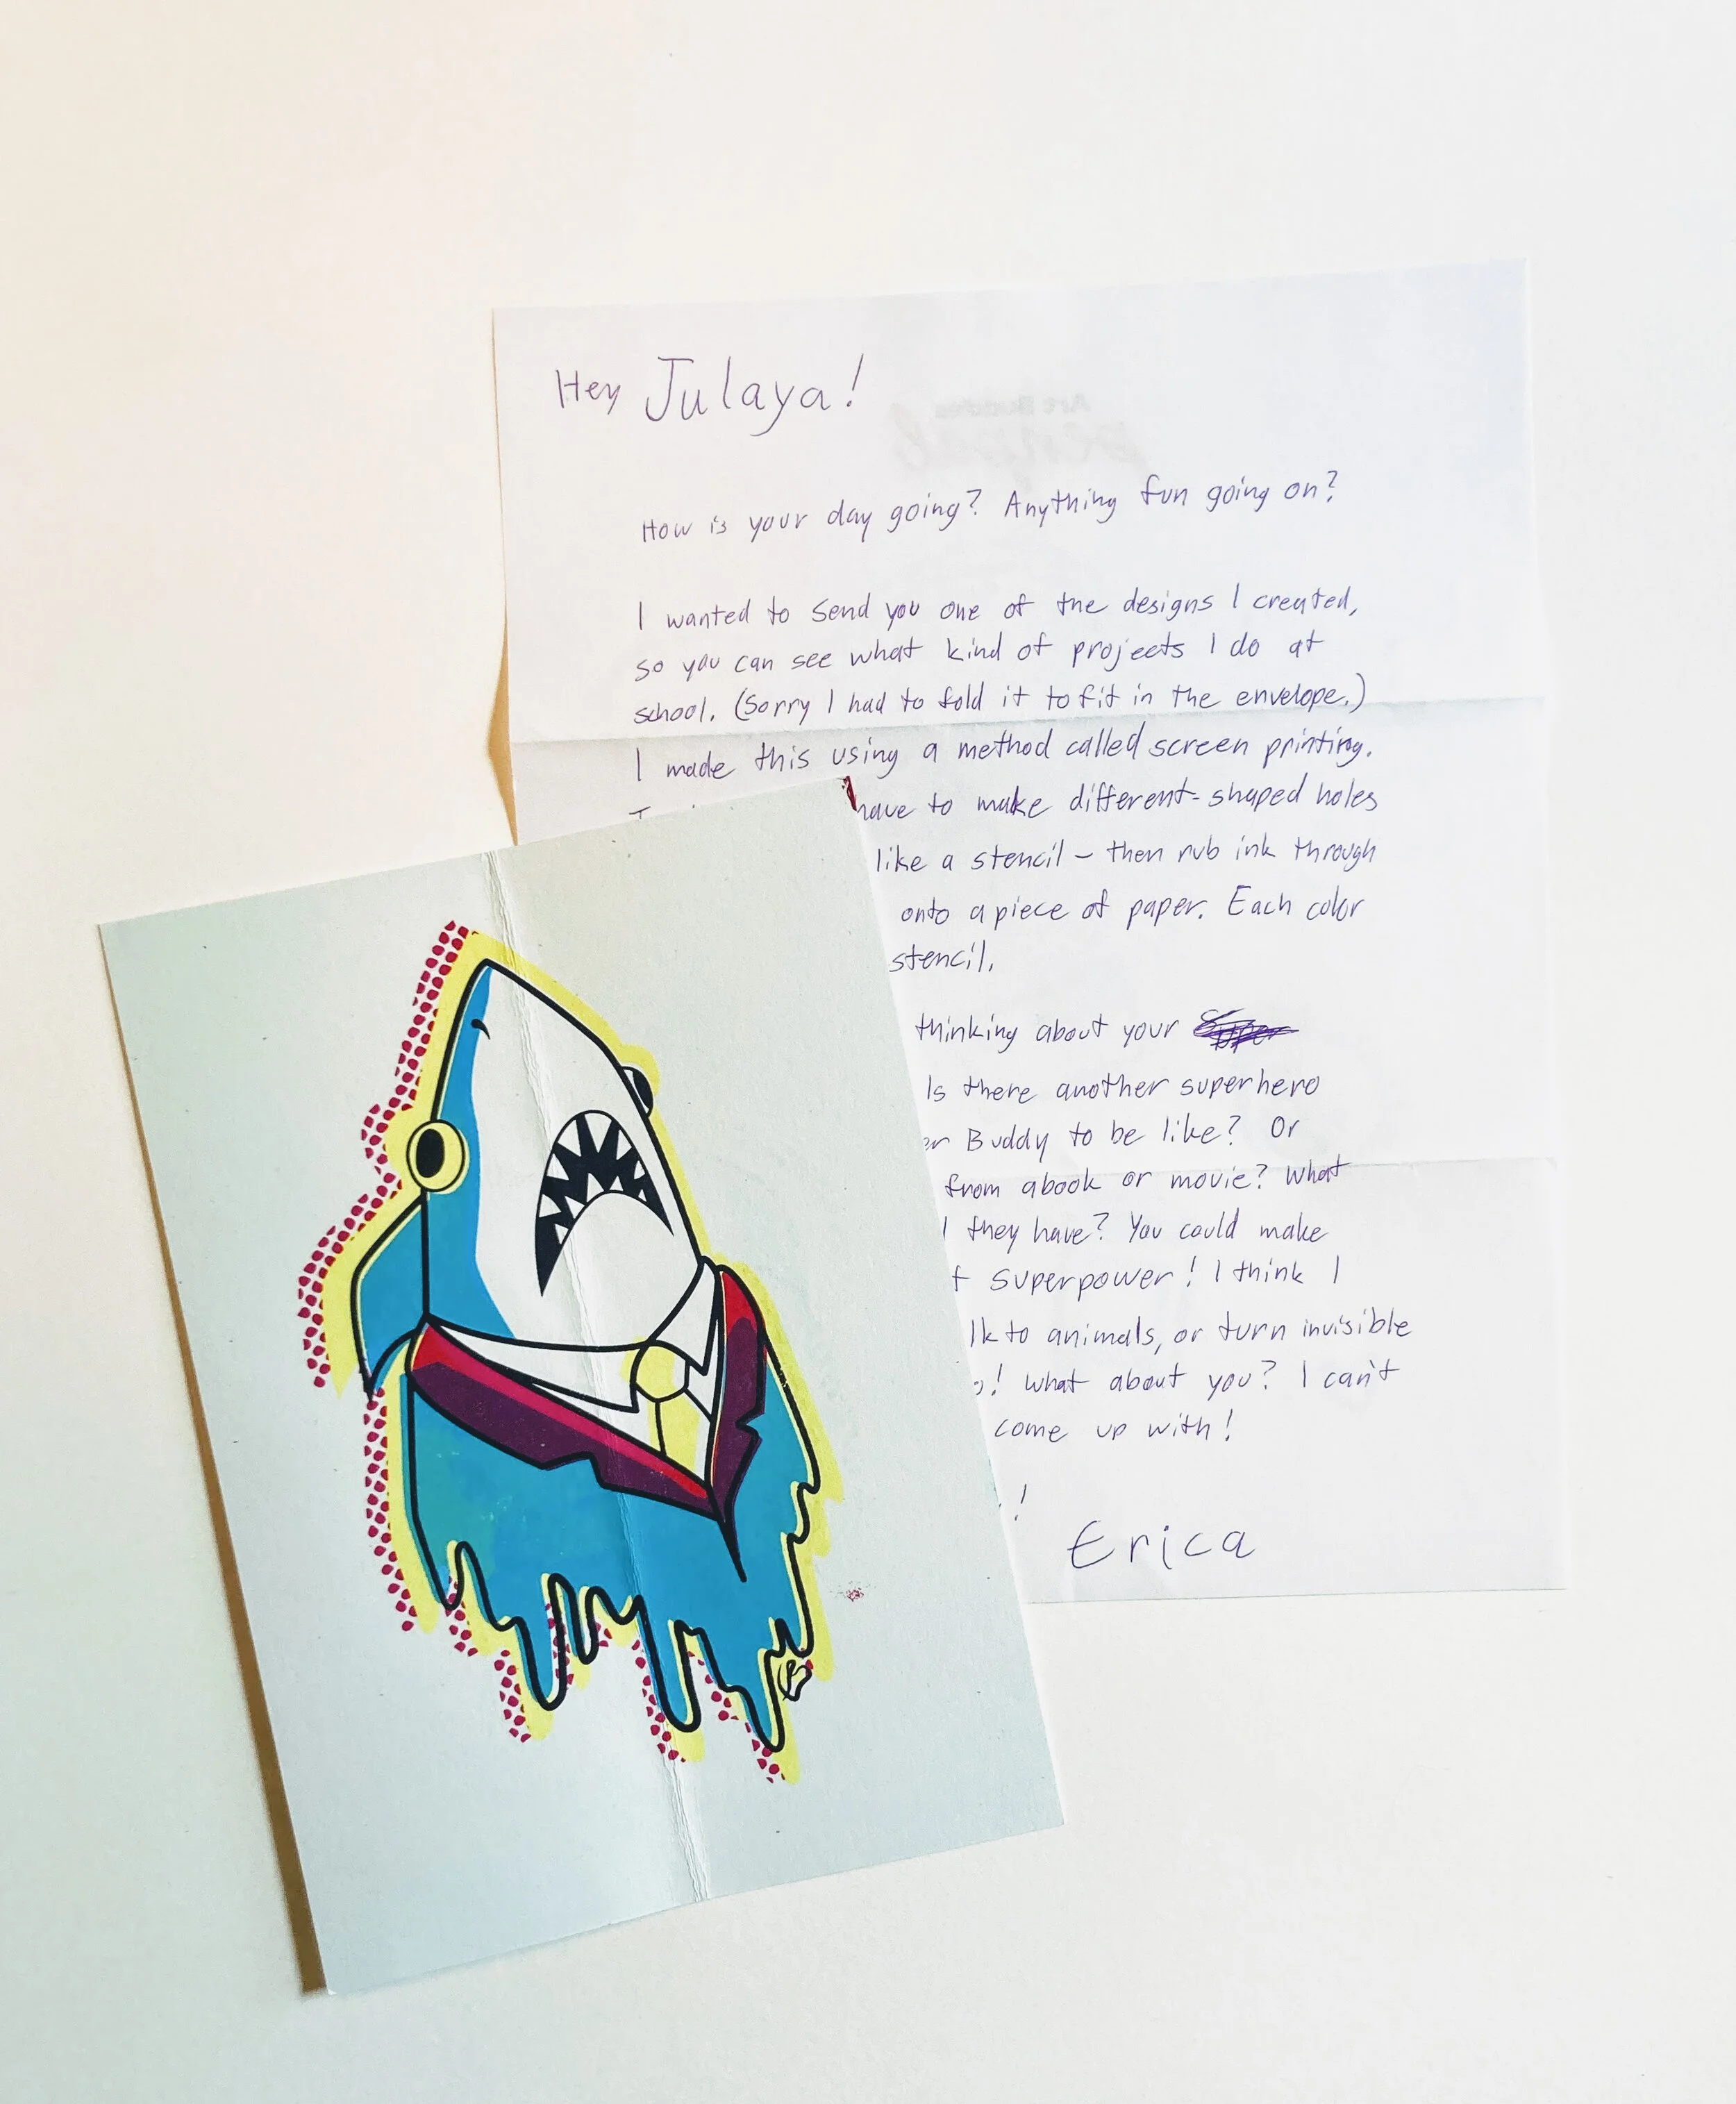 Hey Julaya!
How is your day going? Anything fun going on?
I wanted to send you one of the designs I created,
so you can see what kind of projects I do at
school. (Sorry I had to fold it to fit in the envelope.)
I made this using a method called screen printing.
have to make different-shaped holes
like a stencil – then rub ink through
onto a piece of paper. Each color
stencil.
thinking about your
Is there another superhero
Buddy to be like? Or
from a book or movie? What
they have? You could make
superpower! I think I
to animals, or turn invisible
! What about you? I can't
come up with!
!
Erica